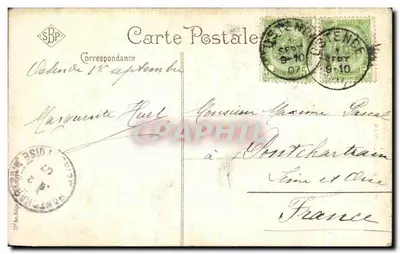 SBP
Carte Postale
Correspondance
Ostende 1er septembre
Marguerite Huel
Monsieur Maxime Pascal
à Pontchartrain
Seine et Oise
France
OSTENDE
1
SEPT
9-10
07
OSTENDE
1
SEPT
9-10
CPAPHIL